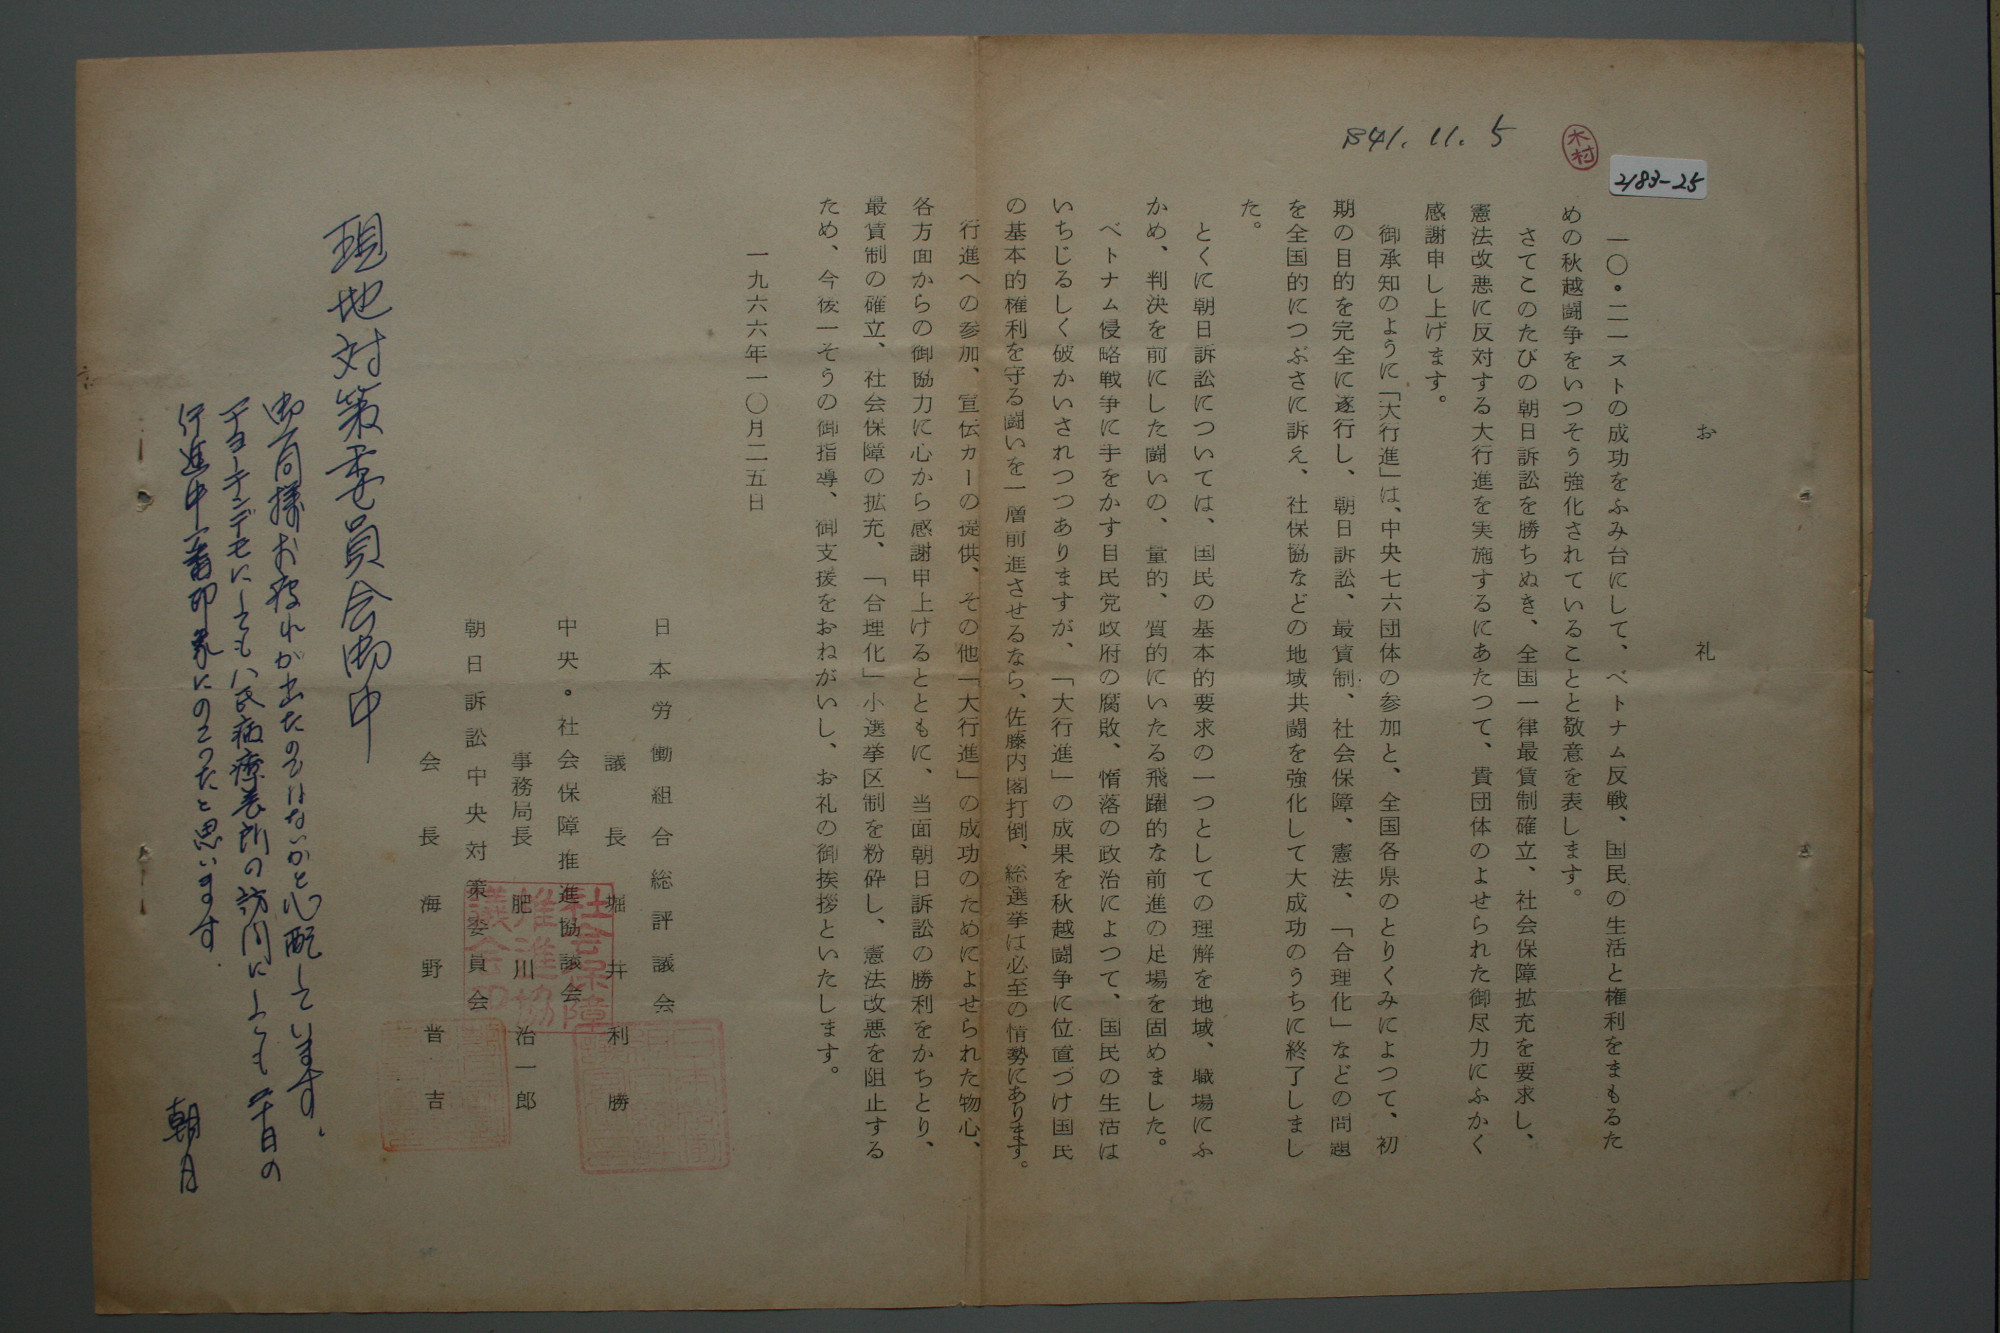 S41.11.5
木村
2183-25
お礼
一〇・二一ストの成功をふみ台にして、ベトナム反戦、国民の生活と権利をまもるた
めの秋越闘争をいつそう強化されていることと敬意を表します。
さてこのたびの朝日訴訟を勝ちぬき、全国一律最賃制確立、社会保障拡充を要求し、
憲法改悪に反対する大行進を実施するにあたつて、貴団体のよせられた御尽力にふかく
感謝申し上げます。
御承知のように「大行進」は、中央七六団体の参加と、全国各県のとりくみによつて、初
期の目的を完全に遂行し、朝日訴訟、最賃制、社会保障、憲法、「合理化」などの問題
を全国的につぶさに訴え、社保協などの地域共闘を強化して大成功のうちに終了しまし
た。
とくに朝日訴訟については、国民の基本的要求の一つとしての理解を地域、職場にふ
かめ、判決を前にした闘いの、量的、質的にいたる飛躍的な前進の足場を固めました。
ベトナム侵略戦争に手をかす自民党政府の腐敗、惰落の政治によつて、国民の生活は
いちじるしく破かいされつつありますが、「大行進」の成果を秋越闘争に位置づけ国民
の基本的権利を守る闘いを一層前進させるなら、佐藤内閣打倒、総選挙は必至の情勢にあります。
行進への参加、宣伝カーの提供、その他「大行進」の成功のためによせられた物心、
各方面からの御協力に心から感謝申上けるとともに、当面朝日訴訟の勝利をかちとり、
最賃制の確立、社会保障の拡充、「合理化」小選挙区制を粉砕し、憲法改悪を阻止する
ため、今後一そうの御指導、御支援をおねがいし、お礼の御挨拶といたします。
一九六六年一〇月二五日
日本労働組合総評議会
議長 堀井利勝
中央・社会保障推進協議会
事務局長 肥川治一郎
朝日訴訟中央対策委員会
会長 海野晋吉
社会保障
推進協
議会印
現地対策委員会御中
御一同様お疲れが出たのではないかと心配しています。
チョーチンデモにしてもハ氏病療養所の訪問にしても 廿日の
行進中一番印象にのこつたと思います。
朝日